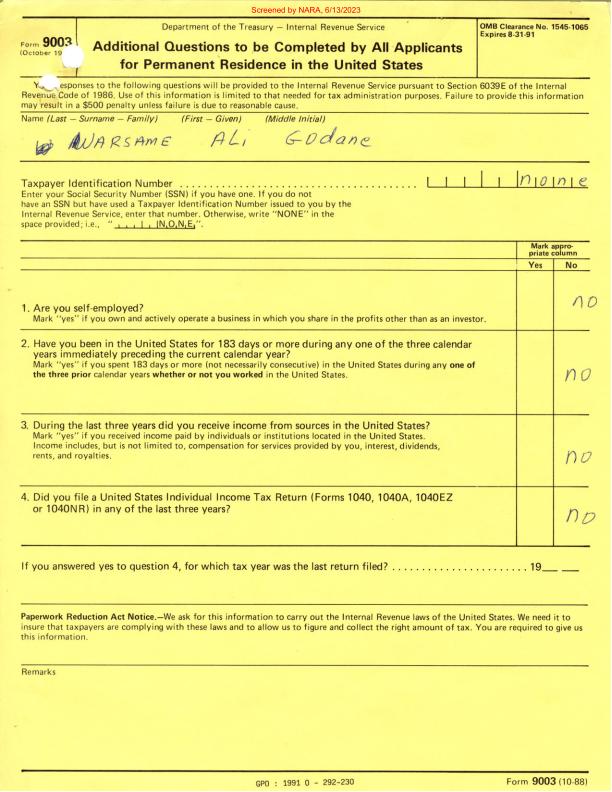 Screened by NARA, 6/13/2023
Form 9003
(October 19
Department of the Treasury — Internal Revenue Service
Additional Questions to be Completed by All Applicants
for Permanent Residence in the United States
OMB Clearance No. 1545-1065
Expires 8-31-91
esponses to the following questions will be provided to the Internal Revenue Service pursuant to Section 6039E of the Internal
Revenue Code of 1986. Use of this information is limited to that needed for tax administration purposes. Failure to provide this information
may result in a $500 penalty unless failure is due to reasonable cause.
Name (Last — Surname — Family) (First — Given) (Middle Initial)
WARSAME ALi GODane
Taxpayer Identification Number none
Enter your Social Security Number (SSN) if you have one. If you do not
have an SSN but have used a Taxpayer Identification Number issued to you by the
Internal Revenue Service, enter that number. Otherwise, write "NONE" in the
space provided; i.e., "NONE".
Mark appro-
priate column
Yes No
1. Are you self-employed? no
Mark "yes" if you own and actively operate a business in which you share in the profits other than as an investor.
2. Have you been in the United States for 183 days or more during any one of the three calendar
years immediately preceding the current calendar year?
Mark "yes" if you spent 183 days or more (not necessarily consecutive) in the United States during any one of
the three prior calendar years whether or not you worked in the United States. no
3. During the last three years did you receive income from sources in the United States?
Mark "yes" if you received income paid by individuals or institutions located in the United States.
Income includes, but is not limited to, compensation for services provided by you, interest, dividends,
rents, and royalties. no
4. Did you file a United States Individual Income Tax Return (Forms 1040, 1040A, 1040EZ
or 1040NR) in any of the last three years? no
If you answered yes to question 4, for which tax year was the last return filed? 19__ __
Paperwork Reduction Act Notice.—We ask for this information to carry out the Internal Revenue laws of the United States. We need it to
insure that taxpayers are complying with these laws and to allow us to figure and collect the right amount of tax. You are required to give us
this information.
Remarks
GPO : 1991 O - 292-230
Form 9003 (10-88)